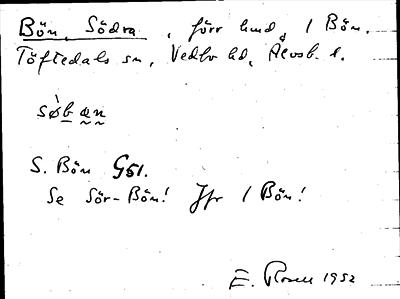 Bön, Södra, förr hmd, 1 Bön.
Töftedals sn, Vedbo hd, Älvsb. l.
søb æn
S. Bön G51.
Se Sör-Bön! Jfr 1 Bön!
E. Rosell 1952